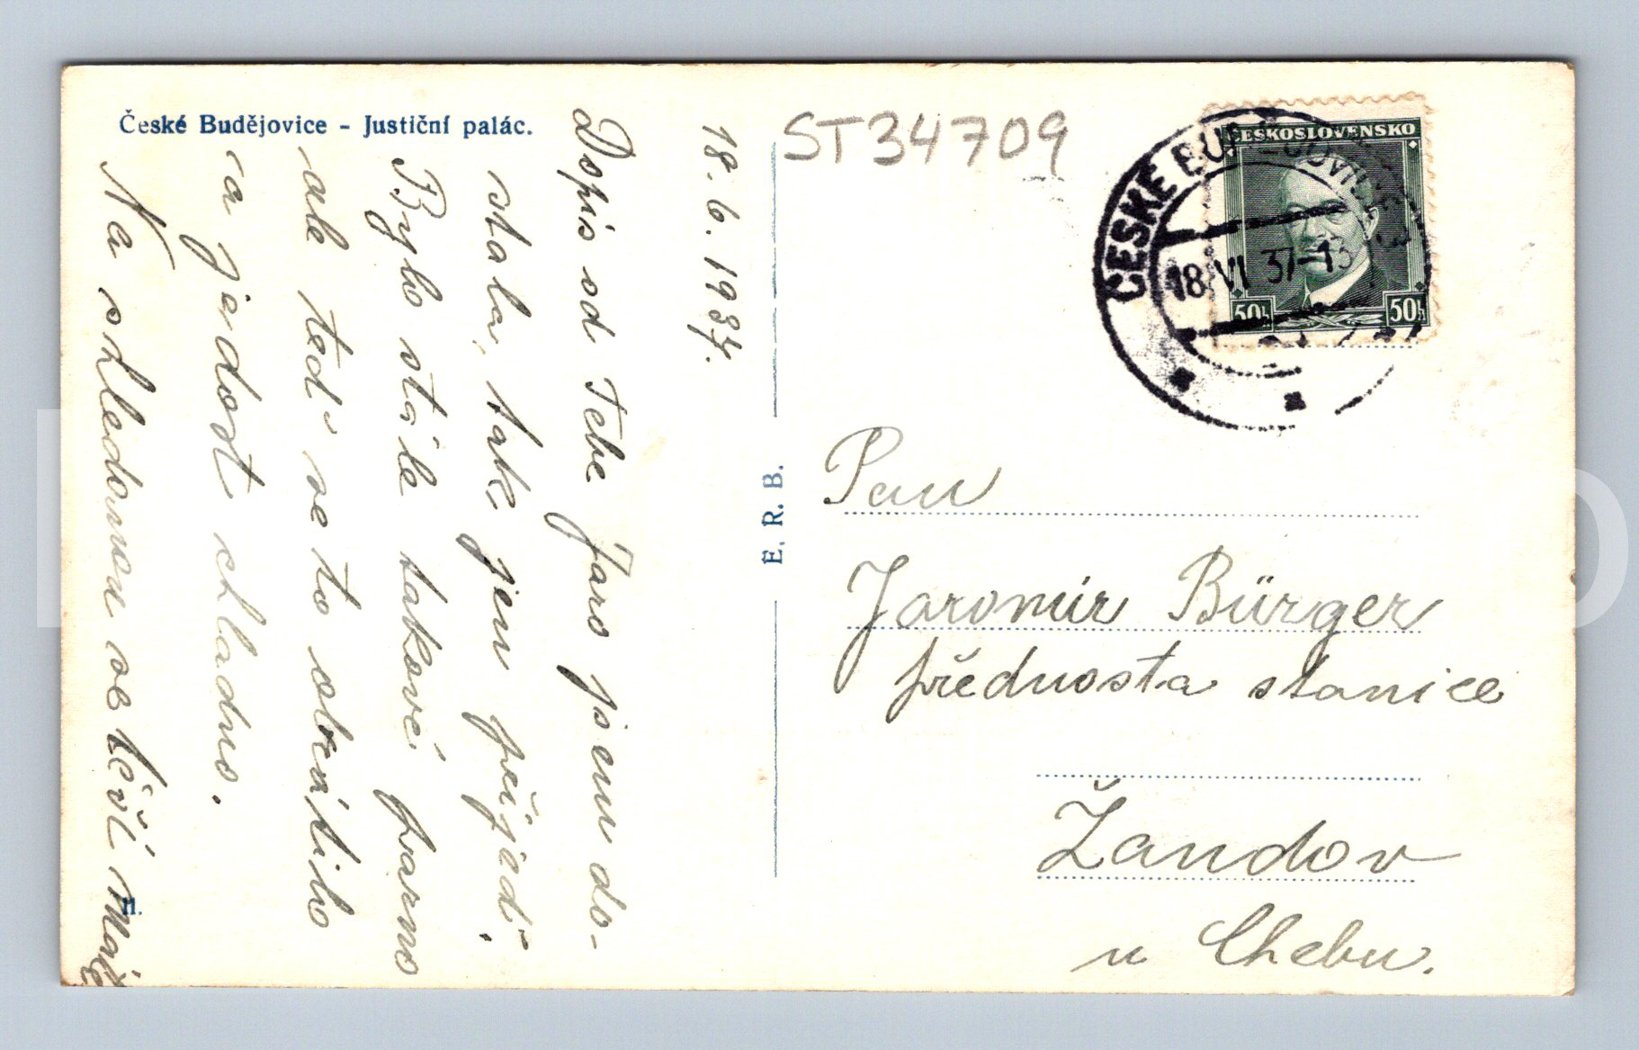 České Budějovice - Justiční palác.
18. 6. 1937.
Dopis od Tebe Jaro jsem do-
stala, tak jen přijeď.
Bylo stále takové parno
ale teď se to obrátilo
a je dost chladno.
Na shledanou se těší
H.
E. R. B.
ST34709
ČESKOSLOVENSKO
50h 50h
ČESKÉ BUDĚJOVICE 3
18.VI 37-13
Pan
Jaromír Bürger
přednosta stanice
Žandov
u Chebu.